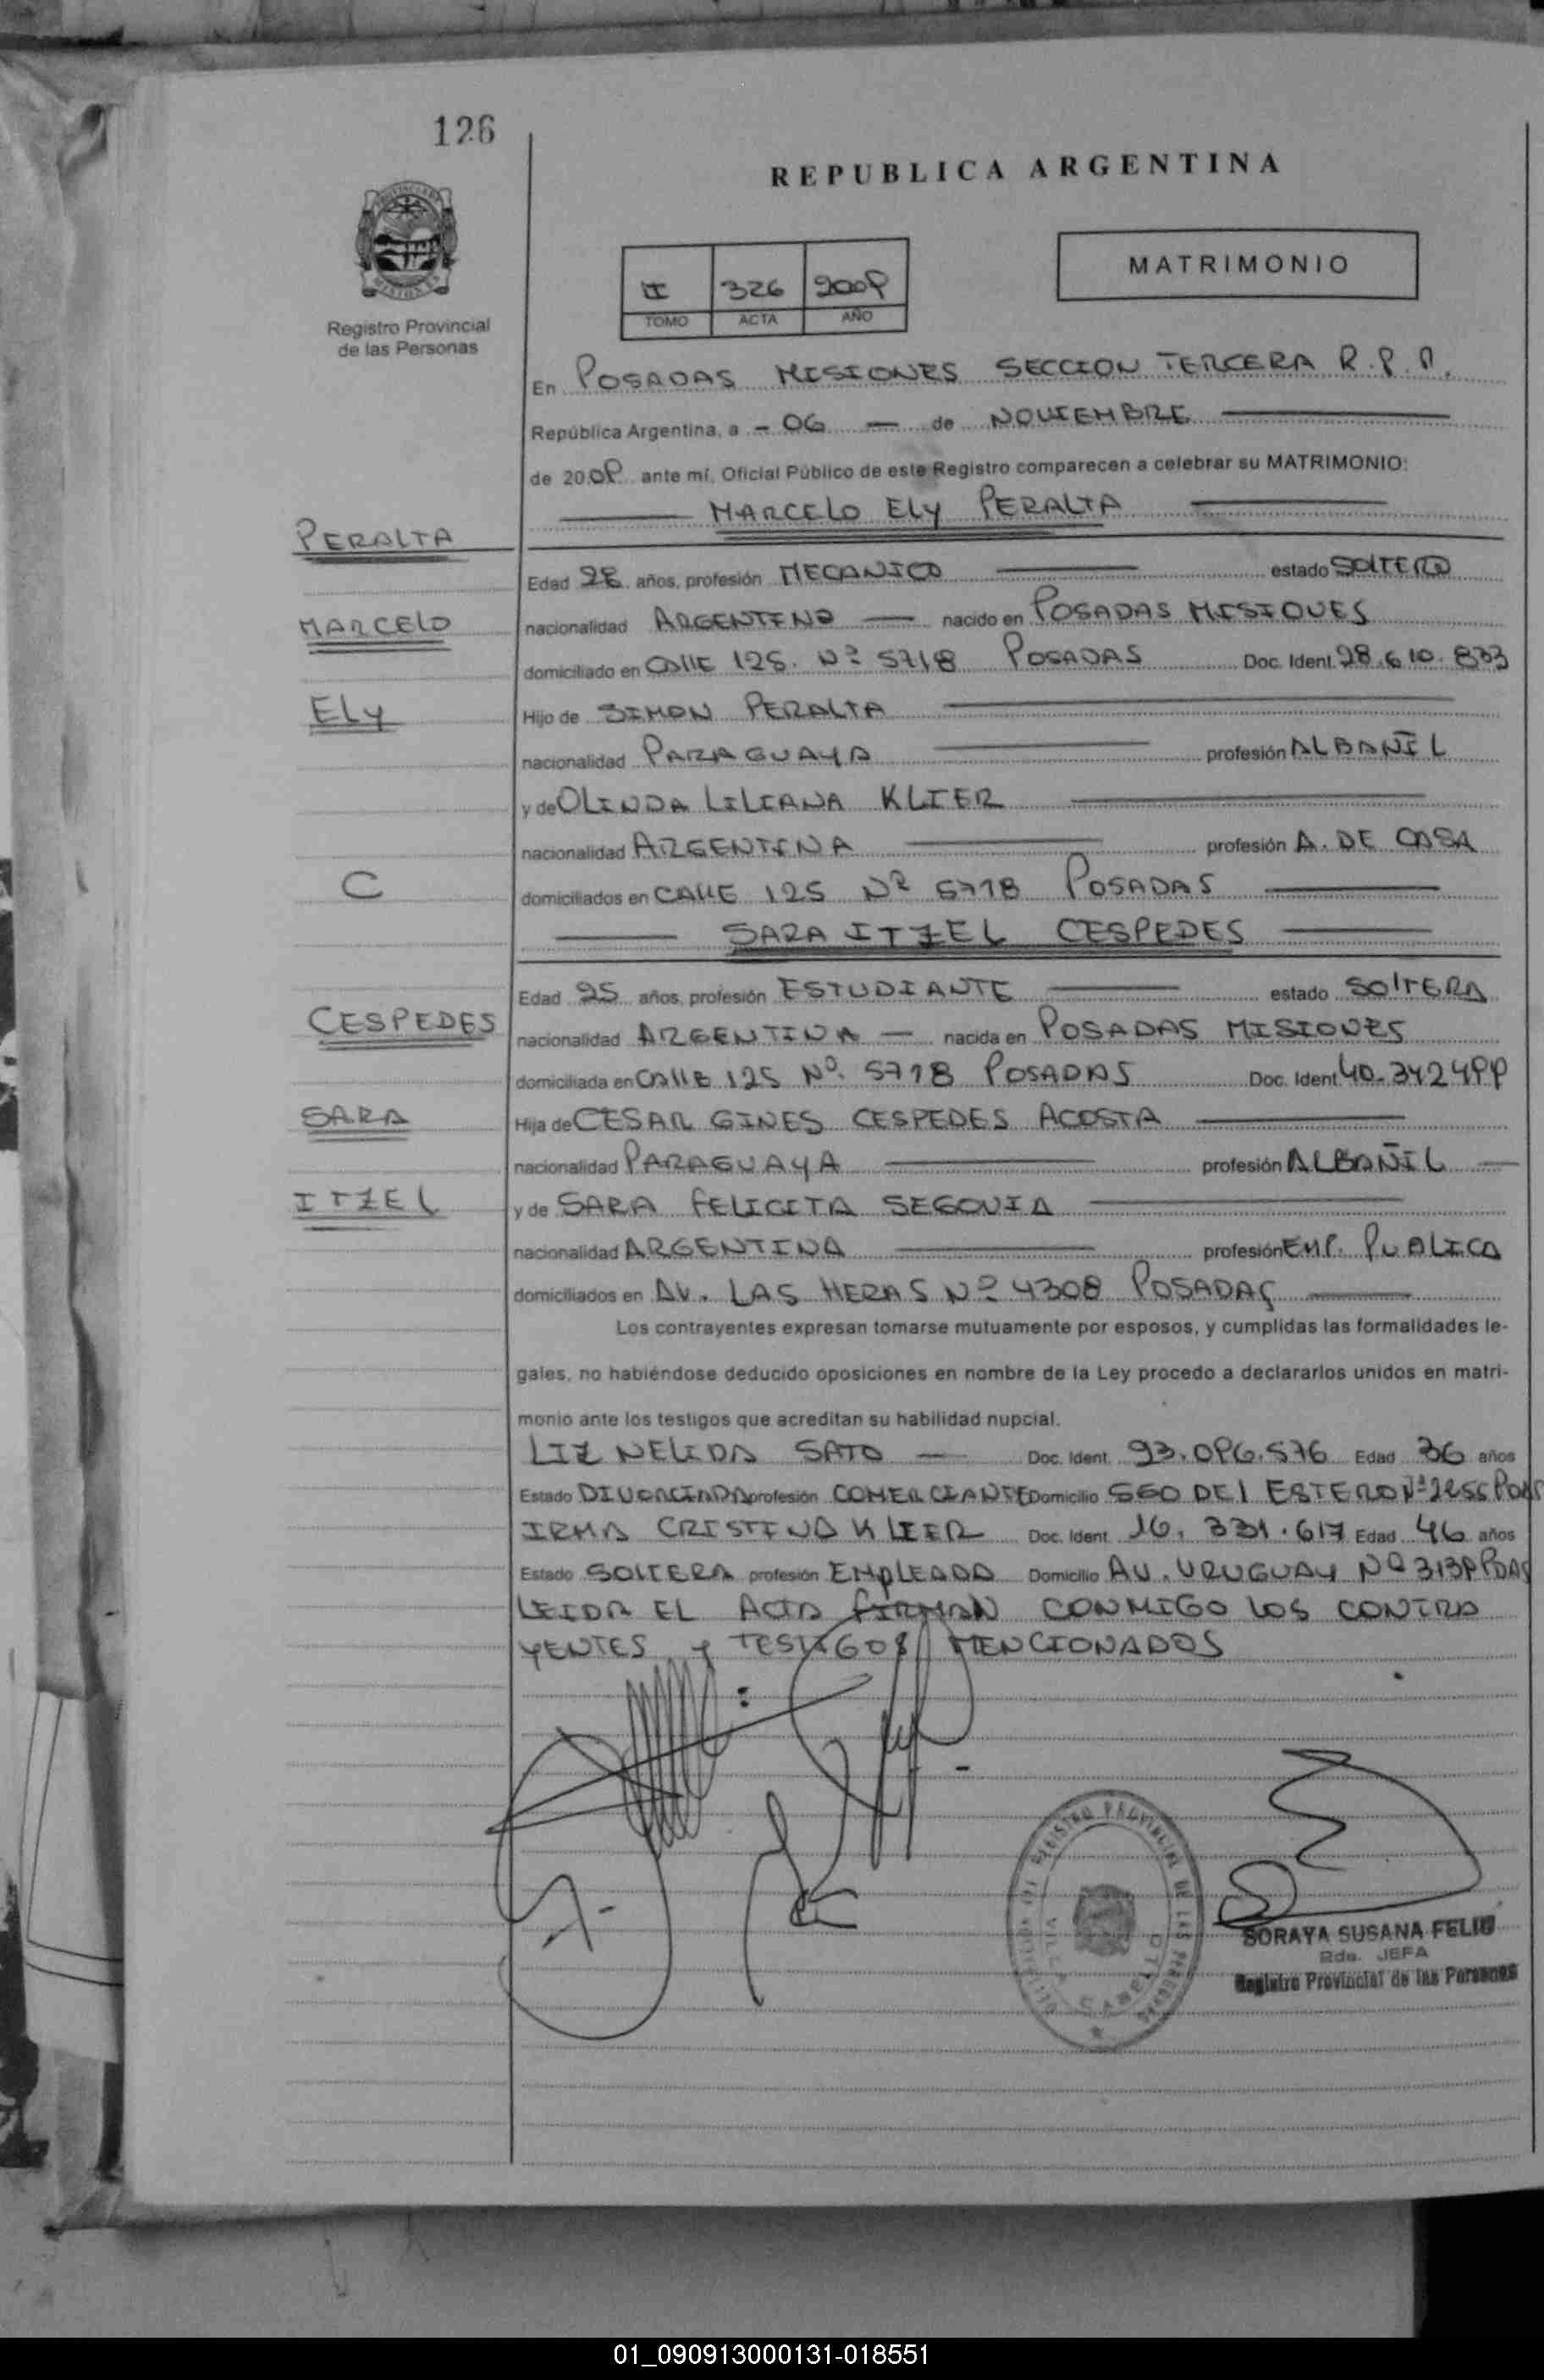 126
REPUBLICA ARGENTINA
MATRIMONIO
II 326 2009
TOMO ACTA AÑO
Registro Provincial
de las Personas
En POSADAS MISIONES SECCION TERCERA R.P.P.
República Argentina, a - 06 — de NOVIEMBRE
de 2009 ante mí, Oficial Público de este Registro comparecen a celebrar su MATRIMONIO:
MARCELO ELY PERALTA
PERALTA
Edad 28 años, profesión MECANICO estado SOLTERO
MARCELO
nacionalidad ARGENTINO — nacido en POSADAS MISIONES
domiciliado en CALLE 125 Nº 5718 POSADAS Doc. Ident. 28.610.833
ELY
Hijo de SIMON PERALTA
nacionalidad PARAGUAYA profesión ALBAÑIL
y de OLINDA LILIANA KLIER
nacionalidad ARGENTINA profesión A. DE CASA
C
domiciliados en CALLE 125 Nº 5718 POSADAS
SARA ITZEL CESPEDES
Edad 25 años, profesión ESTUDIANTE estado SOLTERA
CESPEDES
nacionalidad ARGENTINA — nacida en POSADAS MISIONES
domiciliada en CALLE 125 Nº 5718 POSADAS Doc. Ident. 40.342499
SARA
Hija de CESAR GINES CESPEDES ACOSTA
nacionalidad PARAGUAYA profesión ALBAÑIL —
ITZEL
y de SARA FELICITA SEGOVIA
nacionalidad ARGENTINA profesión EMP. PUBLICA
domiciliados en AV. LAS HERAS Nº 4308 POSADAS
Los contrayentes expresan tomarse mutuamente por esposos, y cumplidas las formalidades le-
gales, no habiéndose deducido oposiciones en nombre de la Ley procedo a declararlos unidos en matri-
monio ante los testigos que acreditan su habilidad nupcial.
LIZ NELIDA SATO — Doc. Ident. 93.096.576 Edad 36 años
Estado DIVORCIADA profesión COMERCIANTE Domicilio SGO DEL ESTERO Nº 2255 PDAS
IRMA CRISTINA KLIER Doc. Ident. 16.331.617 Edad 46 años
Estado SOLTERA profesión EMPLEADA Domicilio AV. URUGUAY Nº 3139 PDAS
LEIDA EL ACTA FIRMAN CONMIGO LOS CONTRA
YENTES Y TESTIGOS MENCIONADOS
REGISTRO PROVINCIAL DE LAS PERSONAS
VILLA CABELLO
SORAYA SUSANA FELIU
2da. JEFA
Registro Provincial de las Personas
01_090913000131-018551